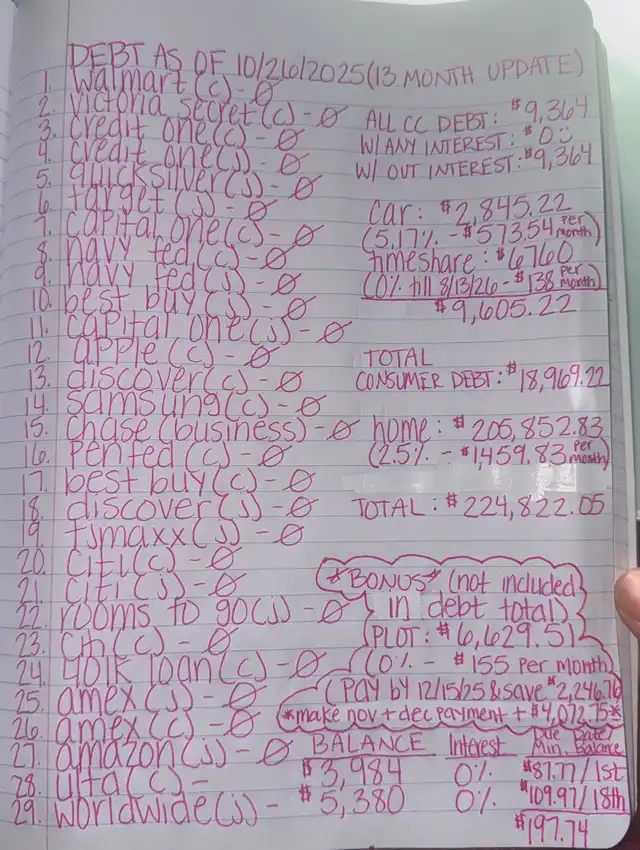 DEBT AS OF 10/26/2025 (13 MONTH UPDATE)
1. Walmart (c) - Ø
2. victoria secret (c) - Ø
3. credit one (c) - Ø
4. credit one (j) - Ø
5. quicksilver (j) - Ø
6. target (j) - Ø
7. capital one (c) - Ø
8. navy fed (c) - Ø
9. navy fed (j) - Ø
10. best buy (j) - Ø
11. capital one (j) - Ø
12. apple (c) - Ø
13. discover (c) - Ø
14. samsung (c) - Ø
15. chase (business) - Ø
16. penfed (c) - Ø
17. best buy (c) - Ø
18. discover (j) - Ø
19. tjmaxx (j) - Ø
20. citi (c) - Ø
21. citi (j) - Ø
22. rooms to go (j) - Ø
23. citi (c) - Ø
24. 401k loan (c) - Ø
25. amex (j) - Ø
26. amex (c) - Ø
27. amazon (j) - Ø
ALL CC DEBT: $9,364
W/ ANY INTEREST: $0
W/ OUT INTEREST: $9,364
car: $2,845.22
(5.17% - $573.54 per month)
timeshare: $6760
(0% till 8/13/26 - $138 per month)
$9,605.22
TOTAL
CONSUMER DEBT: $18,969.22
home: $205,852.83
(2.5% - $1459.83 per month)
TOTAL: $224,822.05
*BONUS* (not included
in debt total)
PLOT: $6,629.51
(0% - $155 per month)
(PAY by 12/15/25 & save $2,246.76
*make nov + dec payment + $4,072.75*
BALANCE Interest Due Date/ Min. Balance
28. ulta (c) - $3,984 0% $87.77/1st
29. worldwide (j) - $5,380 0% $109.97/18th
$197.74